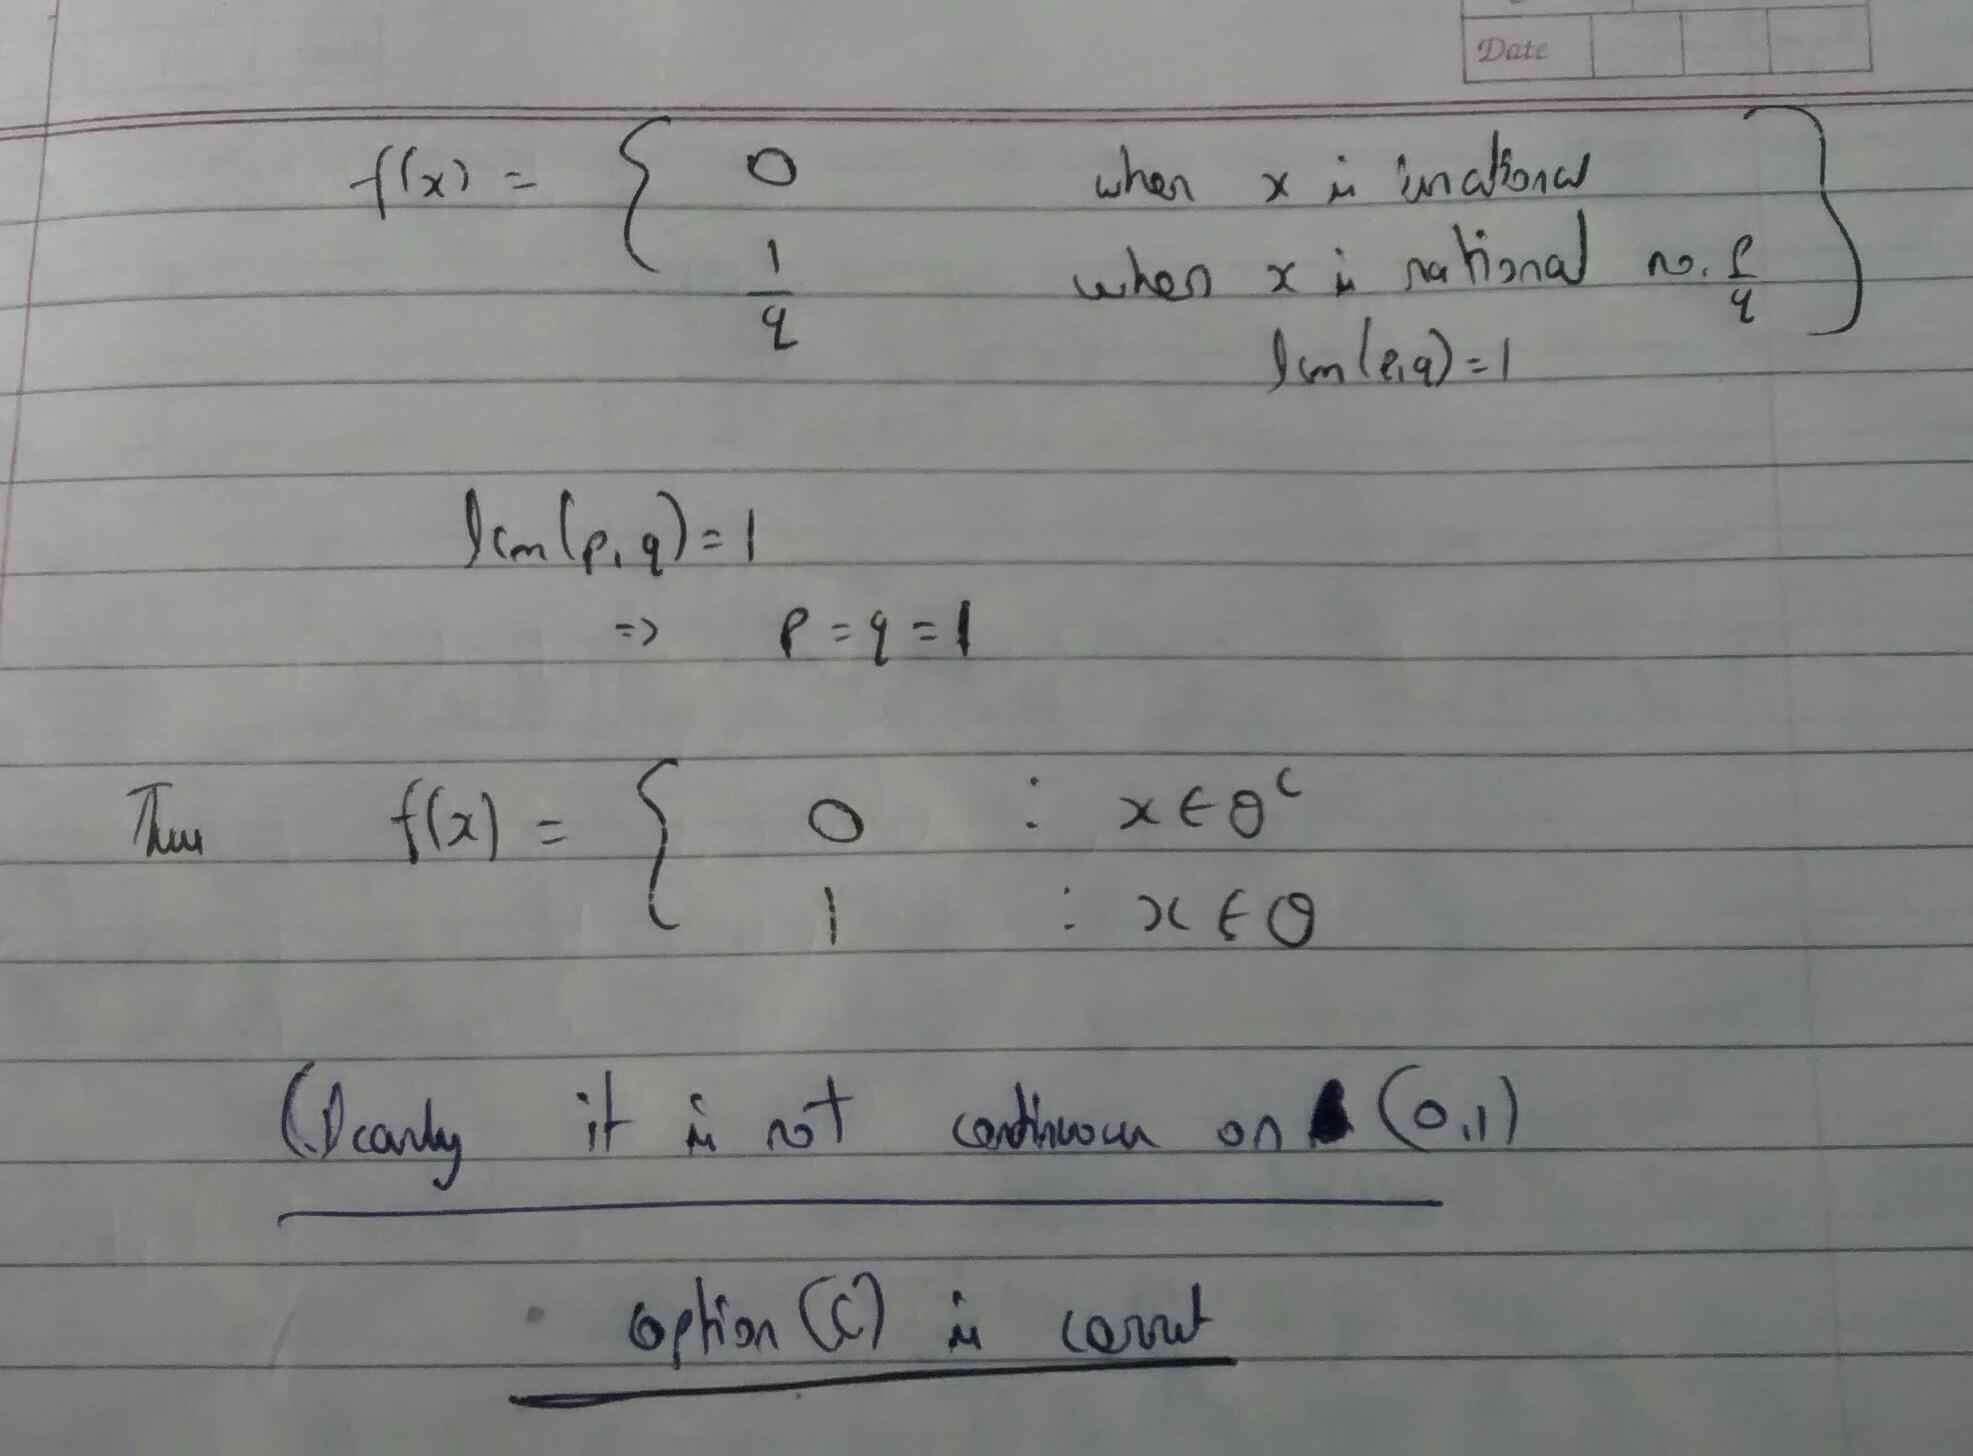 Date
f(x) = { 0 when x is irrational
1/q when x is rational no. p/q }
lcm(p,q)=1
lcm(p,q)=1
=> p=q=1
Thus f(x) = { 0 : x∈Q^c
1 : x∈Q
Clearly it is not continuous on (0,1)
option (C) is correct